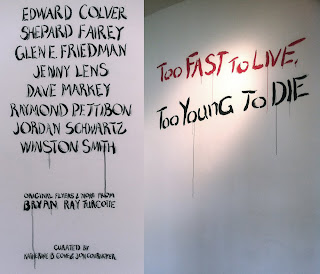 EDWARD COLVER
SHEPARD FAIREY
GLEN E. FRIEDMAN
JENNY LENS
DAVE MARKEY
RAYMOND PETTIBON
JORDAN SCHWARTZ
WINSTON SMITH
ORIGINAL FLYERS & MORE FROM
BRYAN RAY TURCOTTE
CURATED BY
TOO FAST TO LIVE,
TOO YOUNG TO DIE